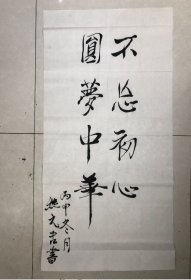 不忘初心
圓夢中華
丙申冬月